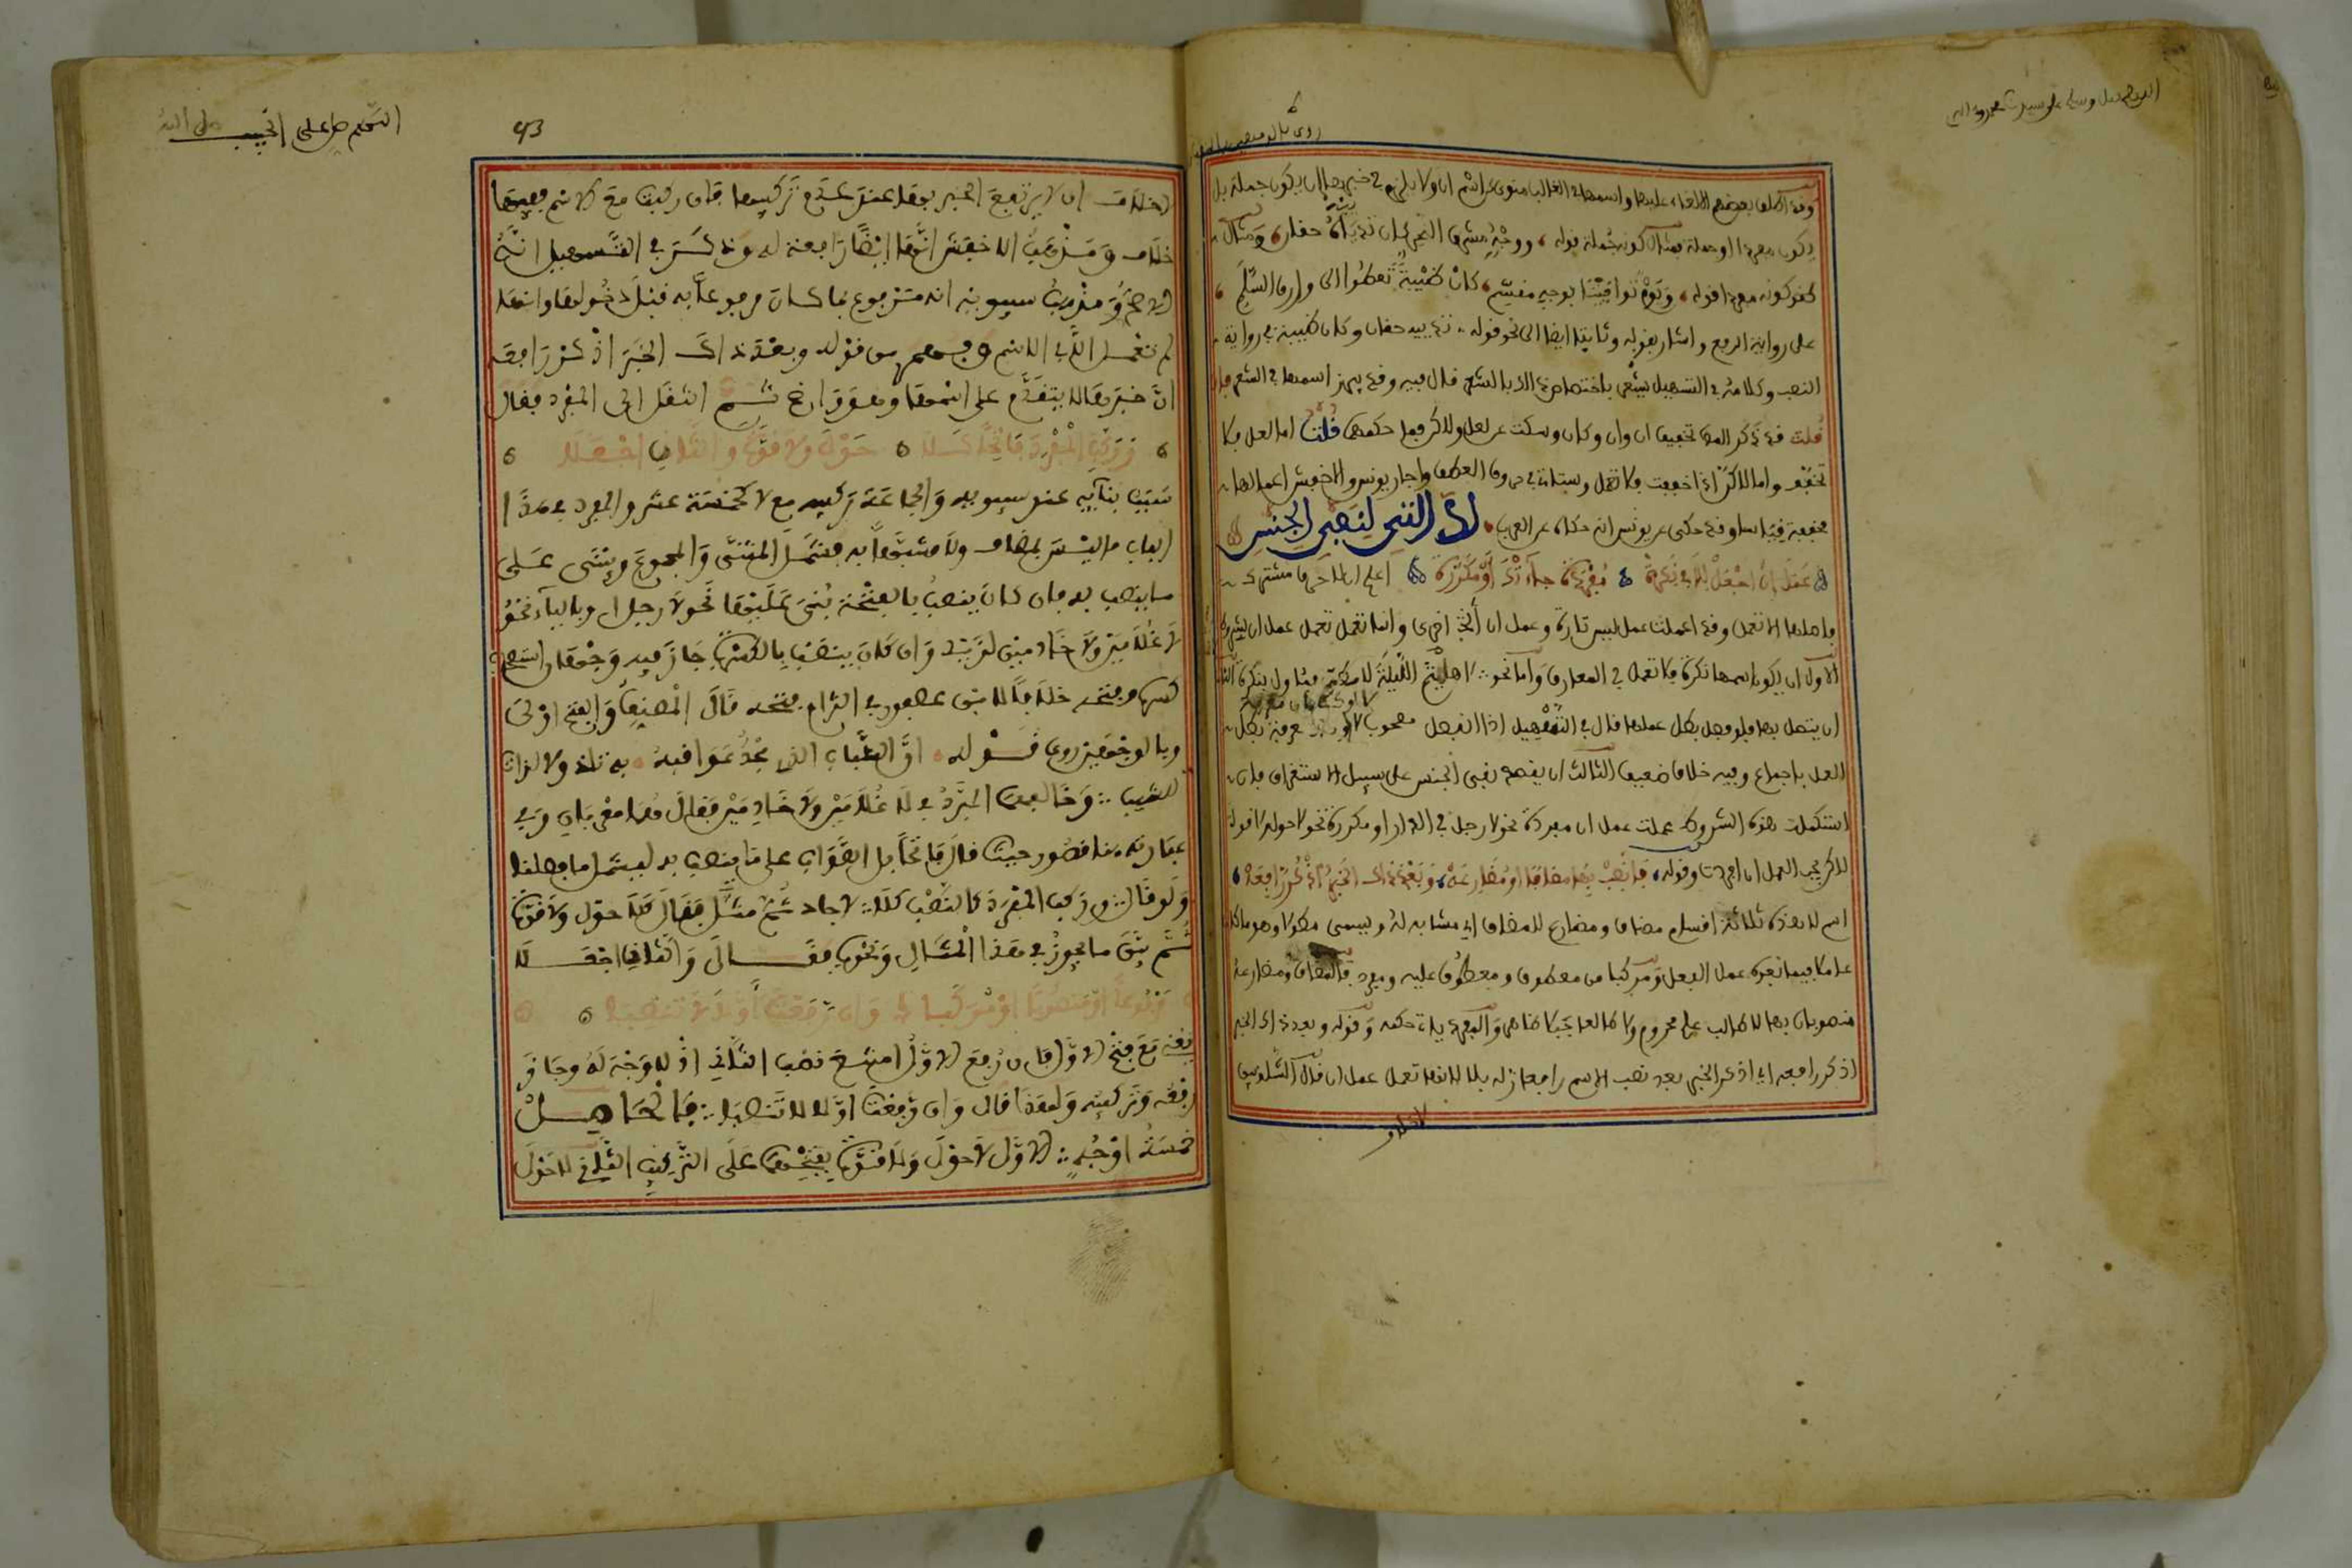 اللهم صل وسلم على سيدنا محمد وآله
وقد اطلق بعضهم الالغاء عليها واسمها في الغالب منوى كاسم ان ولا يلزم في خبرها ان يكون جملة بل
يكون مفردا او جملة فمثال كونه جملة قوله ووجه مشرق النحر كان ثدياه حقان ومثال
كونه مفردا قوله ويوم توافينا بوجه مقسم كان ظبية تعطوا الى وارق السلم
على رواية الرفع واشار بقوله وثابتا ايضا الى نحو قوله ثدييه حقان وكان ظبية في رواية
النصب وكلامه في التسهيل يشعر باختصاص ذلك بالشعر قال فيه وقد يبرز اسمها في الشعر فان
قلت قد ذكر المص تخفيف ان وان وكان وسكت عن لعل ولاكن فما حكمهما قلت اما لعل فلا
تخفف واما لاكن اذا خففت فلا تعمل وستاتي في حروف العطف واجاز يونس والاخفش اعمالها
مخففة قياسا وقد حكى عن يونس انه حكاه عن العرب لا التي لنفي الجنس
عمل ان اجعل للا في نكرة مفردة جاءتك او مكررة اعلم ان لا حرف مشترك
فاصلها الا تعمل وقد اعملت عمل ليس تارة وعمل ان اخرى وانما تعمل عمل ان بشروط
الاول ان يكون اسمها نكرة فلا تعمل في المعارف واما نحو لا هيثم الليلة للمطي فمئاول بنكرة الثاني
ان يتصل بها فلو فصل بطل عملها قال في التسهيل اذا انفصل مصحوب لا او كان معرفة بطل
العمل باجماع وفيه خلاف ضعيف الثالث ان يقصد نفي الجنس على سبيل الاستغراق فان
استكملت هذه الشروط عملت عمل ان مفردة نحو لا رجل في الدار او مكررة نحو لا حول ولا قوة
لاكن يجب العمل ان افردت وقوله فانصب بها مضافا او مضارعه وبعد ذاك الخبر اذكر رافعه
اسم لا هذه ثلاثة اقسام مضاف ومضارع للمضاف اي مشابه له ويسمى مطولا وهو ما كان
عاملا فيما بعده عمل الفعل ومركبا من معطوف ومعطوف عليه ومفرد فالمضاف ومضارعه
منصوبان بها لا طالب علم محروم ولا طالعا جبلا ظاهر والمفرد ياتي حكمه وقوله وبعد ذاك الخبر
اذكر رافعه اي اذكر الخبر بعد نصب الاسم رافعا له بلا لانها تعمل عمل ان قال الشلوبين
لا خلاف
اللهم صل على الحبيب صلى الله
43
لا خلاف ان لا يرتفع الخبر بها عند عدم تركيبها فان ركبت مع الاسم ففيها
خلاف ومذهب الاخفش انها ايضا رافعة له وذكر في التسهيل انه
الاصح ومذهب سيبويه انه مرفوع بما كان مرفوعا به قبل دخولها وانها
لم تعمل الا في الاسم وفهم من قوله وبعد ذاك الخبر اذكر رافعه
ان خبرها لا يتقدم على اسمها وهو واضح ثم انتقل الى المفرد فقال
وركب المفرد فاتحا كلا حول ولا قوة والثان اجعلا
سبب بنائه عند سيبويه والجماعة تركيبه مع لا كخمسة عشر والمفرد في هذا
الباب ما ليس بمضاف ولا مشبها به فيشمل المثنى والمجموع ويبنى على
ما ينصب به فان كان ينصب بالفتحة بني عليها نحو لا رجل او بالياء نحو
لا غلامين ولا خادمين لزيد وان كان ينصب بالكسرة جاز فيه وجهان استصحاب
كسره وفتحه خلافا لابن عصفور في التزام فتحه قال المصنف والفتح اولى
وبالوجهين روي قوله ان الشباب الذي مجد عواقبه فيه نلذ ولا لذات
للشيب وخالف المبرد في لا غلامين ولا خادمين فقال هما معربان وفي
عبارته هنا قصور حيث قال فاتحا بل الصواب على ما ينصب به ليشمل ما فصلنا
ولو قال وركب المفرد كالنصب كلا لاجاد ثم مثل فقال كلا حول ولا قوة
ثم بين ما يجوز في هذا المثال ونحوه فقال والثان اجعلا
مرفوعا او منصوبا او مركبا وان رفعت اولا لا تنصبا
يعنى مع فتح الاول فان رفع الاول امتنع نصب الثاني اذ لا وجه له وجاز
رفعه وتركيبه ولهذا قال وان رفعت اولا لا تنصبا فالحاصل
خمسة اوجه الاول لا حول ولا قوة بفتحهما على التركيب الثاني لا حول